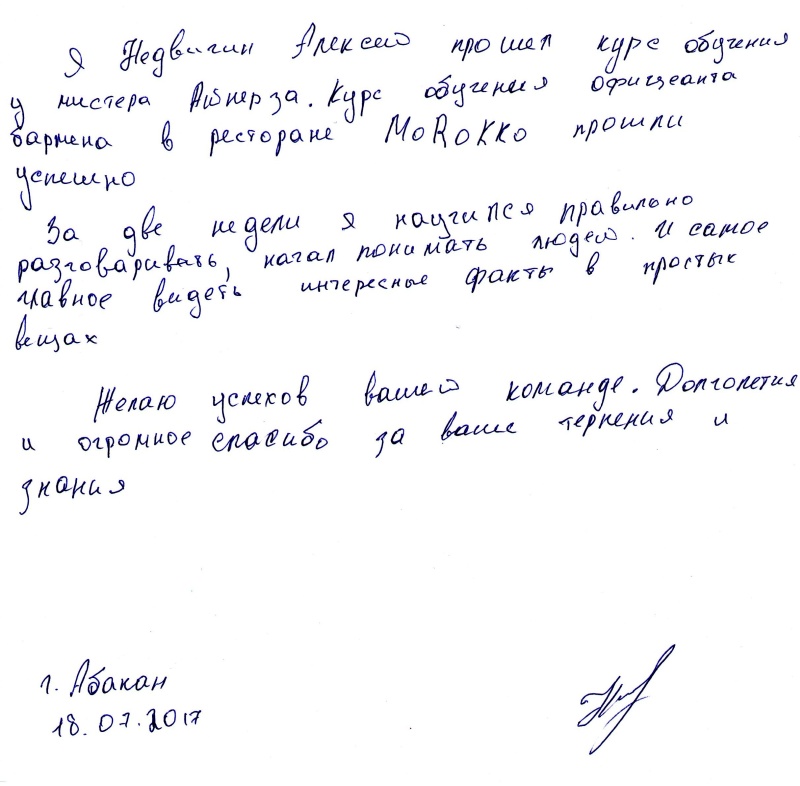 Я Недвигин Алексей прошел курс обучения
у мистера Айнерза. Курс обучения официанта
бармена в ресторане MoRoKKo прошли
успешно
За две недели я научился правильно
разговаривать, начал понимать людей. И самое
главное видеть интересные факты в простых
вещах
Желаю успехов вашей команде. Долголетия
и огромное спасибо за ваше терпения и
знания
г. Абакан
18.07.2017